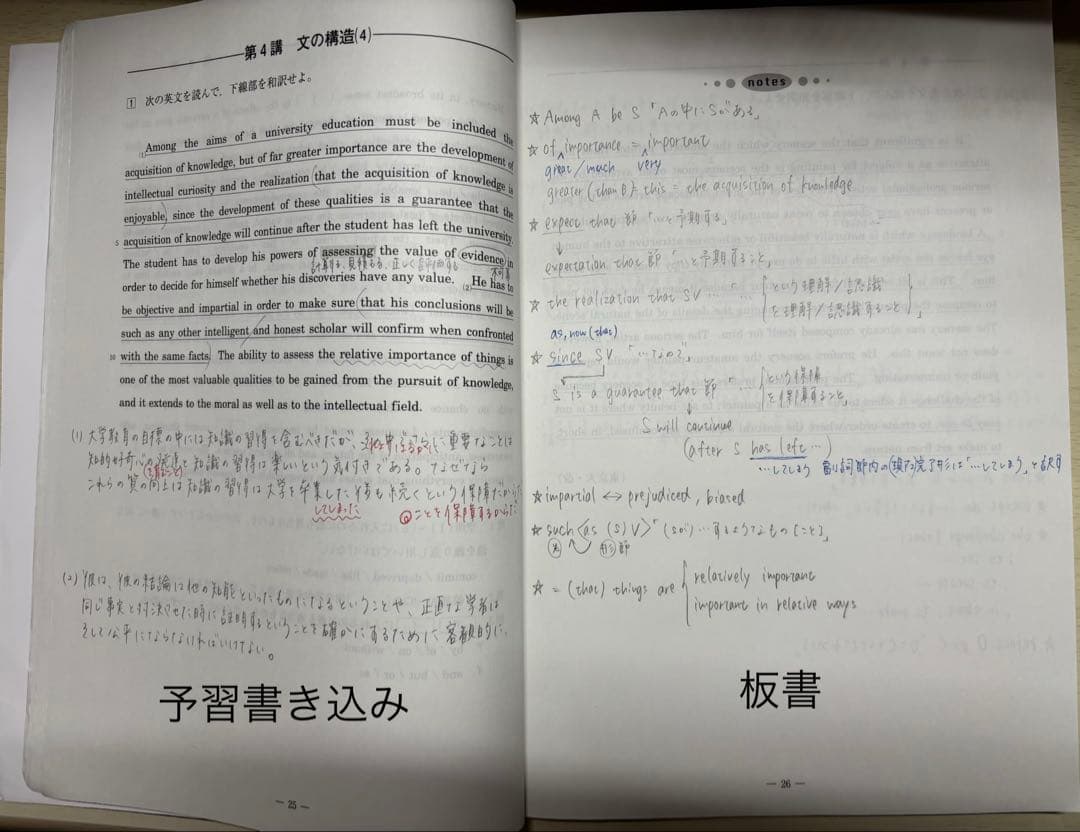 第4講 文の構造(4)
1 次の英文を読んで、下線部を和訳せよ。
(1)Among the aims of a university education must be included the
acquisition of knowledge, but of far greater importance are the development of
intellectual curiosity and the realization that the acquisition of knowledge is
enjoyable, since the development of these qualities is a guarantee that the
5 acquisition of knowledge will continue after the student has left the university.
The student has to develop his powers of assessing the value of evidence in
計算する、見積もる、正しく評価する
不可算
order to decide for himself whether his discoveries have any value. (2)He has to
be objective and impartial in order to make sure that his conclusions will be
such as any other intelligent and honest scholar will confirm when confronted
10 with the same facts. The ability to assess the relative importance of things is
one of the most valuable qualities to be gained from the pursuit of knowledge,
and it extends to the moral as well as to the intellectual field.
(1) 大学教育の目標の中には知識の習得を含むべきだが、はるかに重要なことは
知的好奇心の と知識の習得は楽しいという気付きである。なぜなら
これらの質の向上は知識の習得は大学を卒業した後も続くという保障だから
してしまった
ことを保障するからだ
(2) 彼は、彼の結論は他の知能といったものになるということや、正直な学者は
同じ事実と対決させた時に証明するということを確かにするために客観的に、
そして公平にならなければいけない。
予習書き込み
— 25 —
notes
☆ Among A be S 「Aの中にSがある」
☆ of importance = important
great/much very
greater (than θ) this = the acquisition of knowledge
☆ expect that 節 「…と予期する」
↓
expectation that 節 「…と予期すること」
☆ the realization that SV … 「… という理解/認識
を理解/認識すること」
as, now (that)
☆ since SV 「…なので」
S is a guarantee that 節 「… という保障
を保障すること」
S will continue
(after S has left …)
…してしまう 副詞節内の(現在)完了形は「…してしまう」と訳す
☆ impartial ↔ prejudiced, biased
☆ such <as (S) V> 「(Sが)…するようなもの[こと]」
名 形節
☆ = (that) things are relatively important
important in relative ways
板書
— 26 —